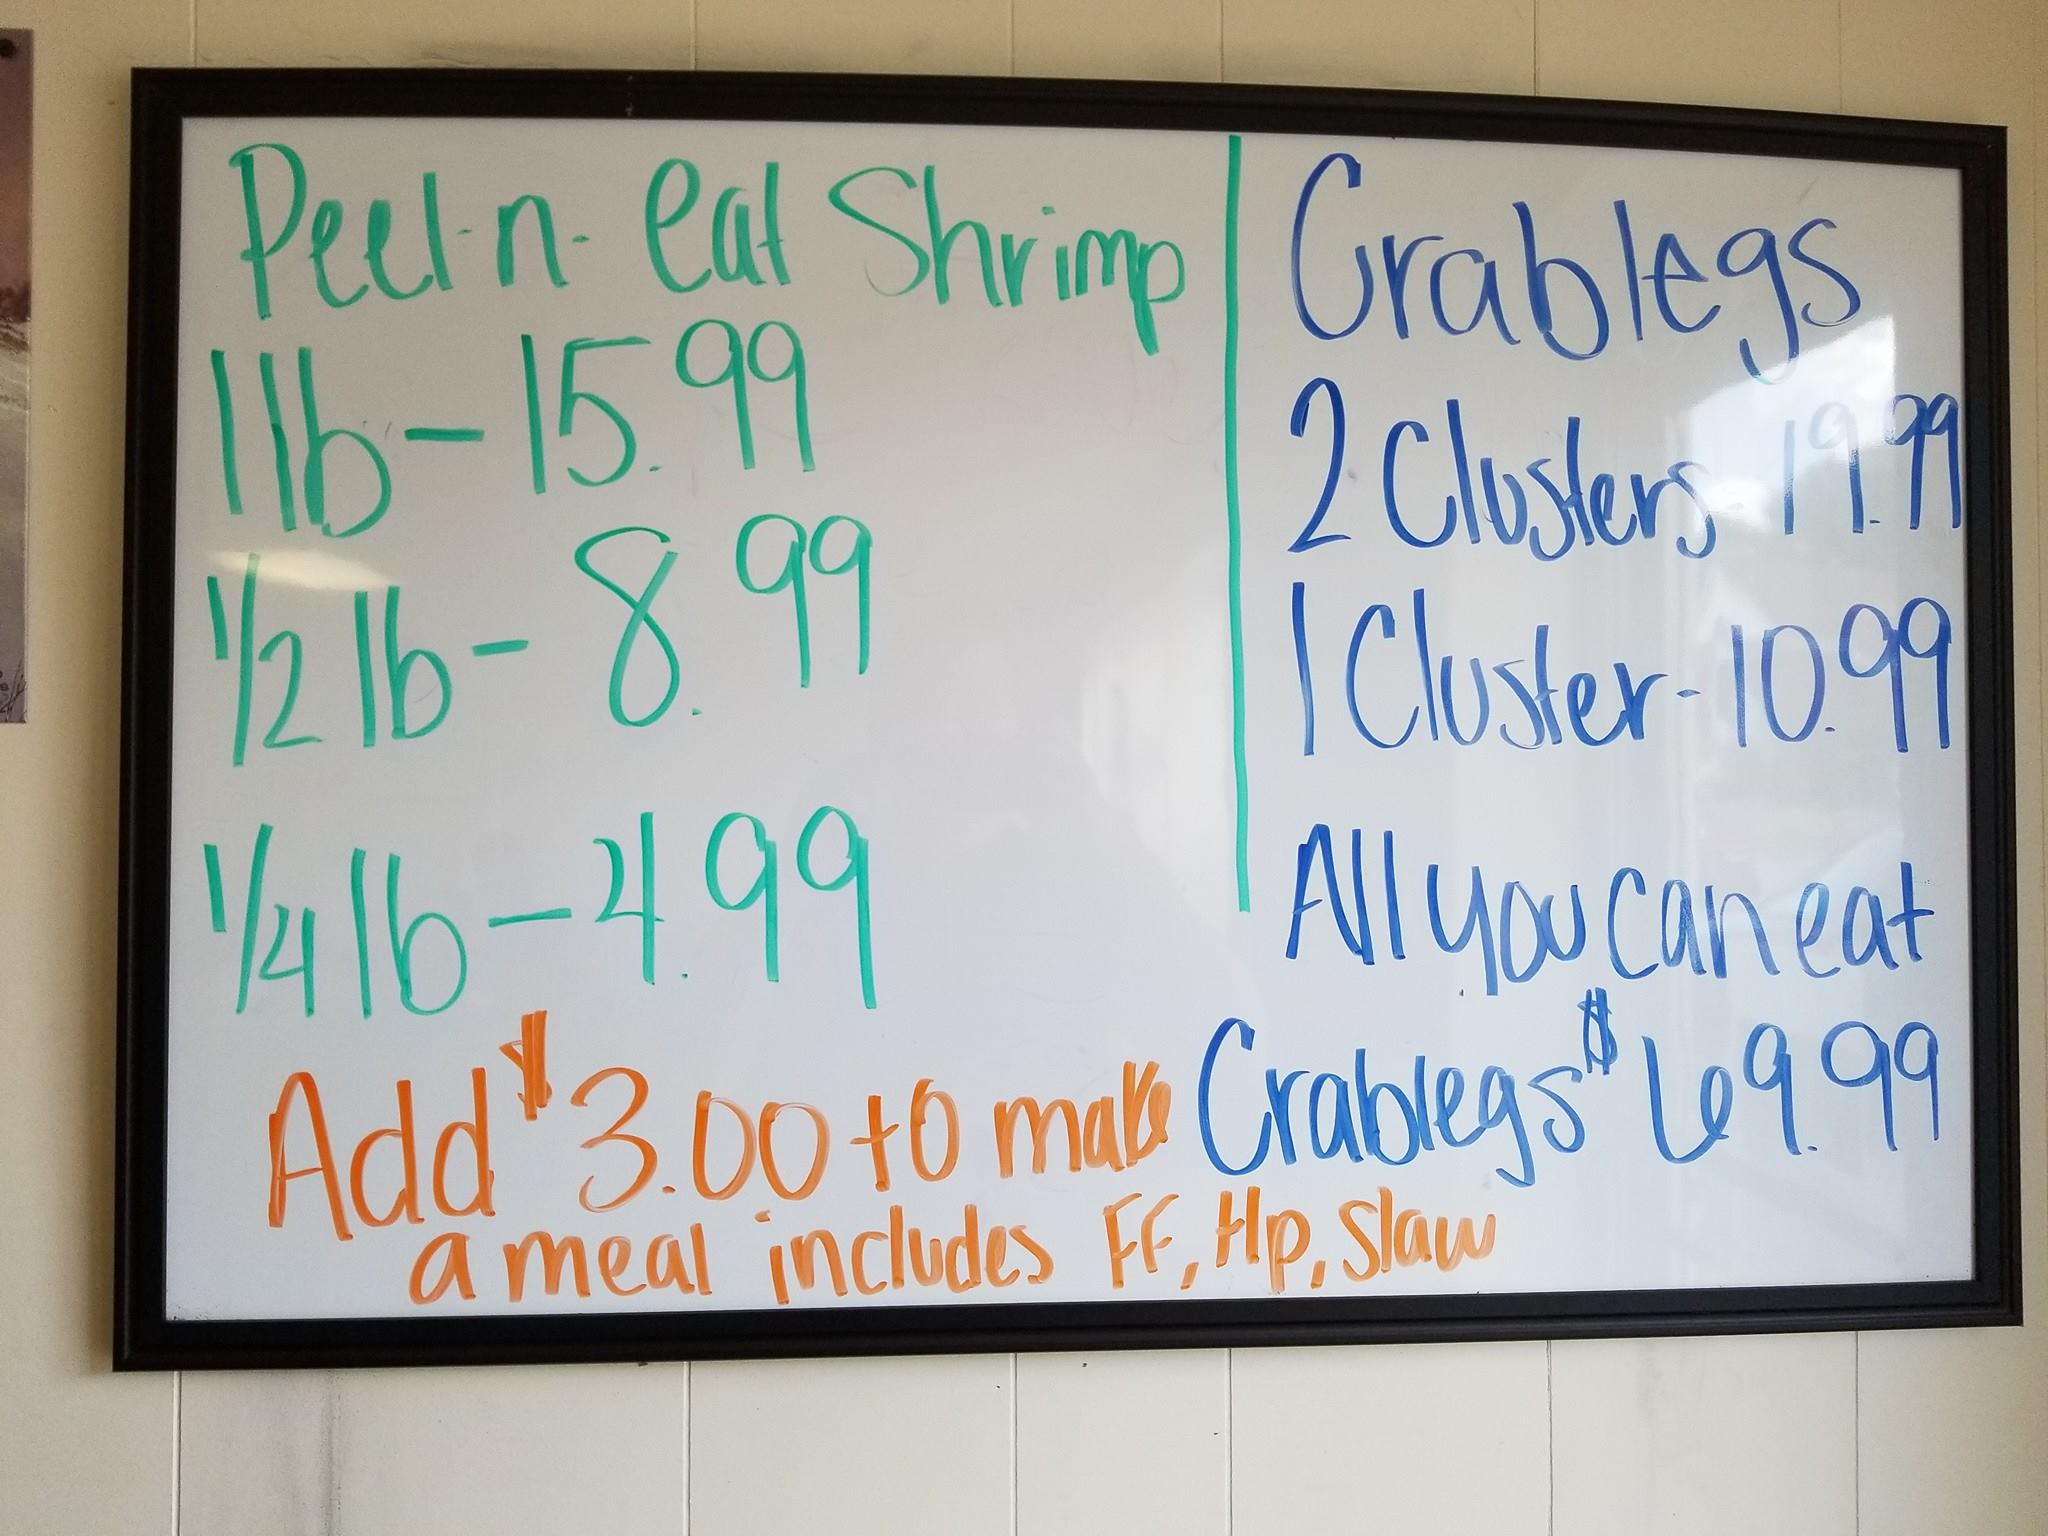 Peel-n-eat Shrimp
1 lb - 15.99
1/2 lb - 8.99
1/4 lb - 4.99
Crablegs
2 Clusters - 19.99
1 Cluster - 10.99
All you can eat
Crablegs $69.99
Add $3.00 to make
a meal includes FF, Hp, Slaw